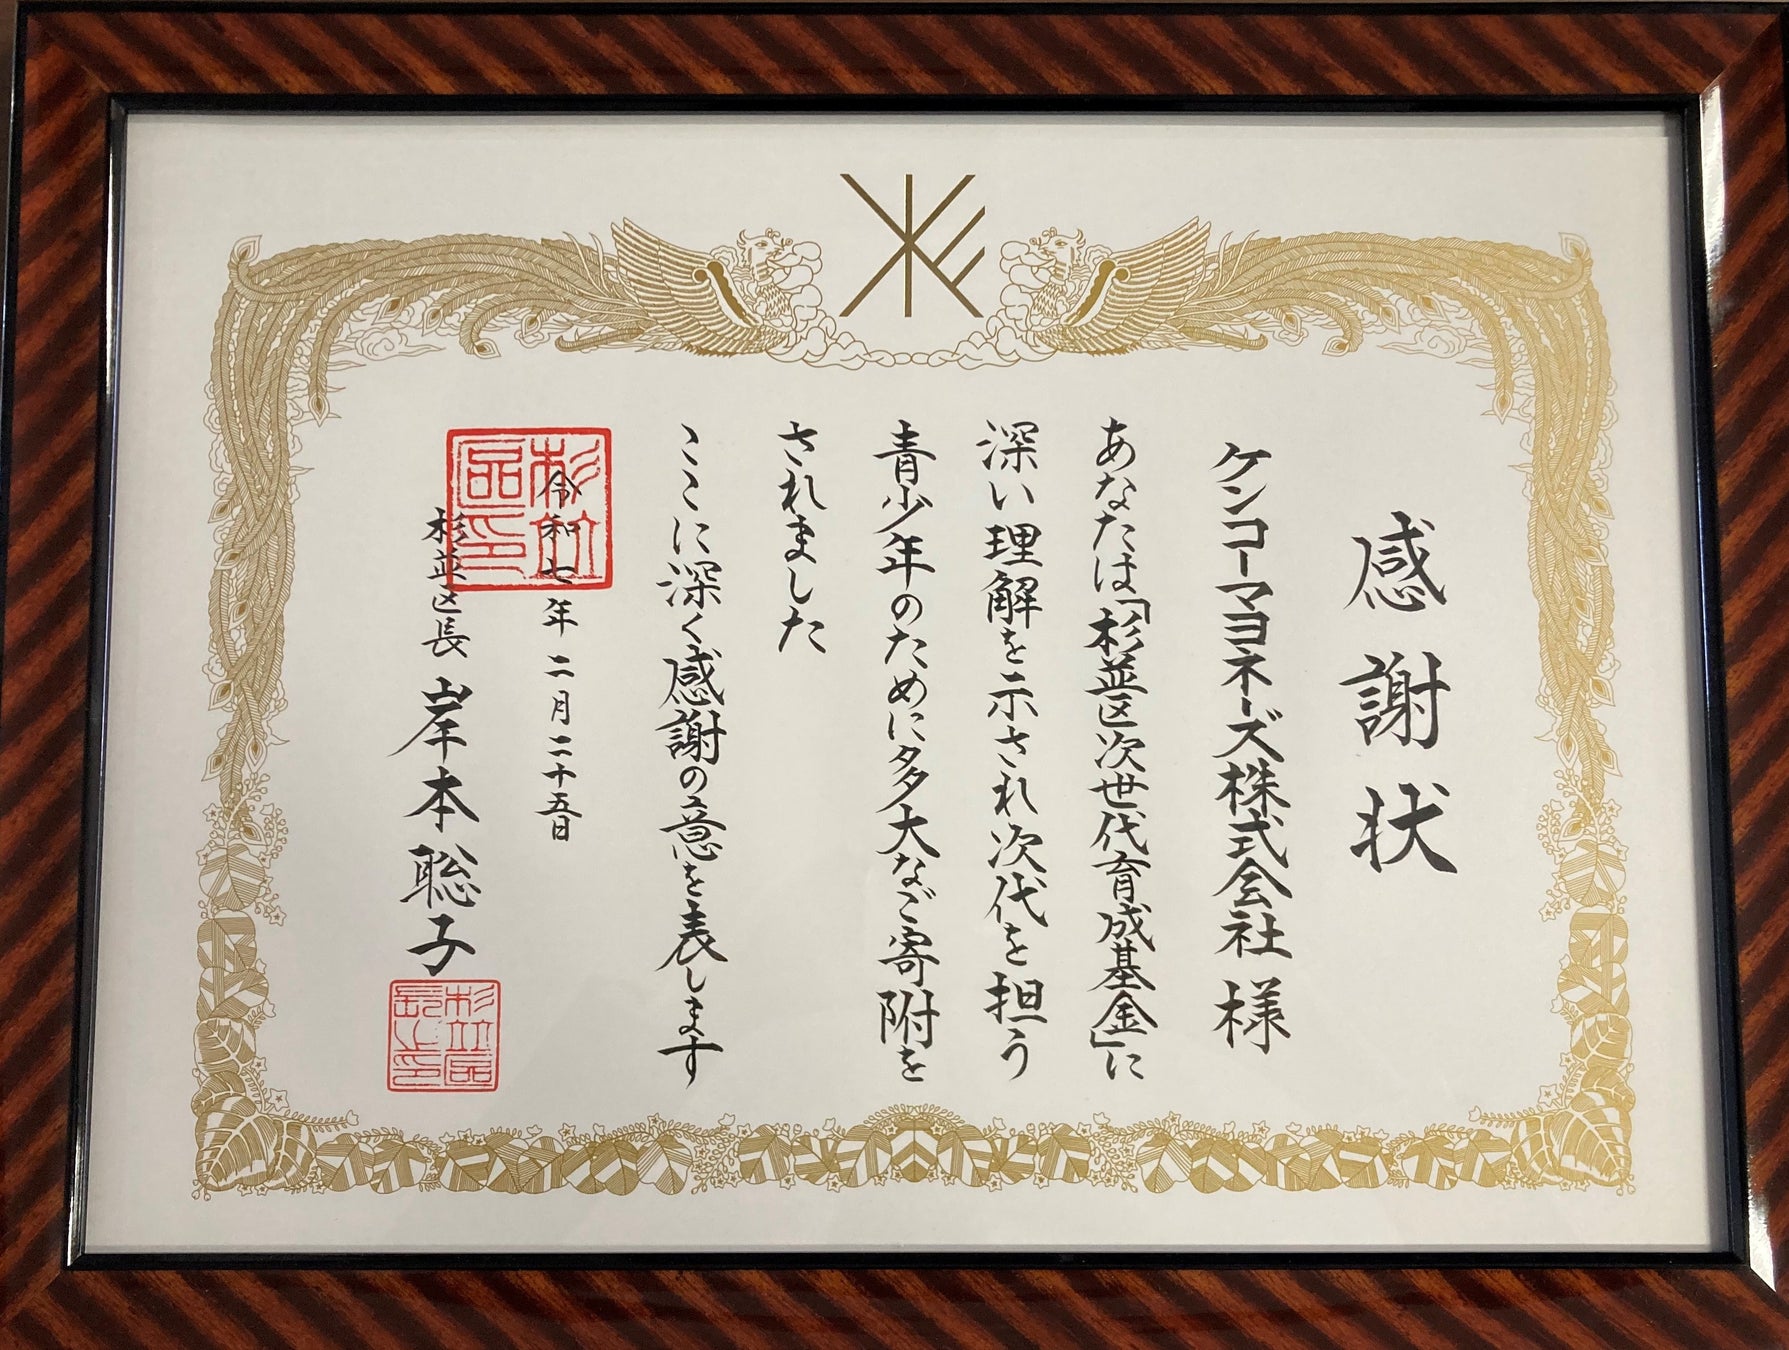 感謝状
ケンコーマヨネーズ株式会社 様
あなたは「杉並区次世代育成基金」に
深い理解を示され次代を担う
青少年のために多大なご寄附を
されました
ここに深く感謝の意を表します
令和七年二月二十五日
杉並区長 岸本聡子
杉並区印
杉並区長之印